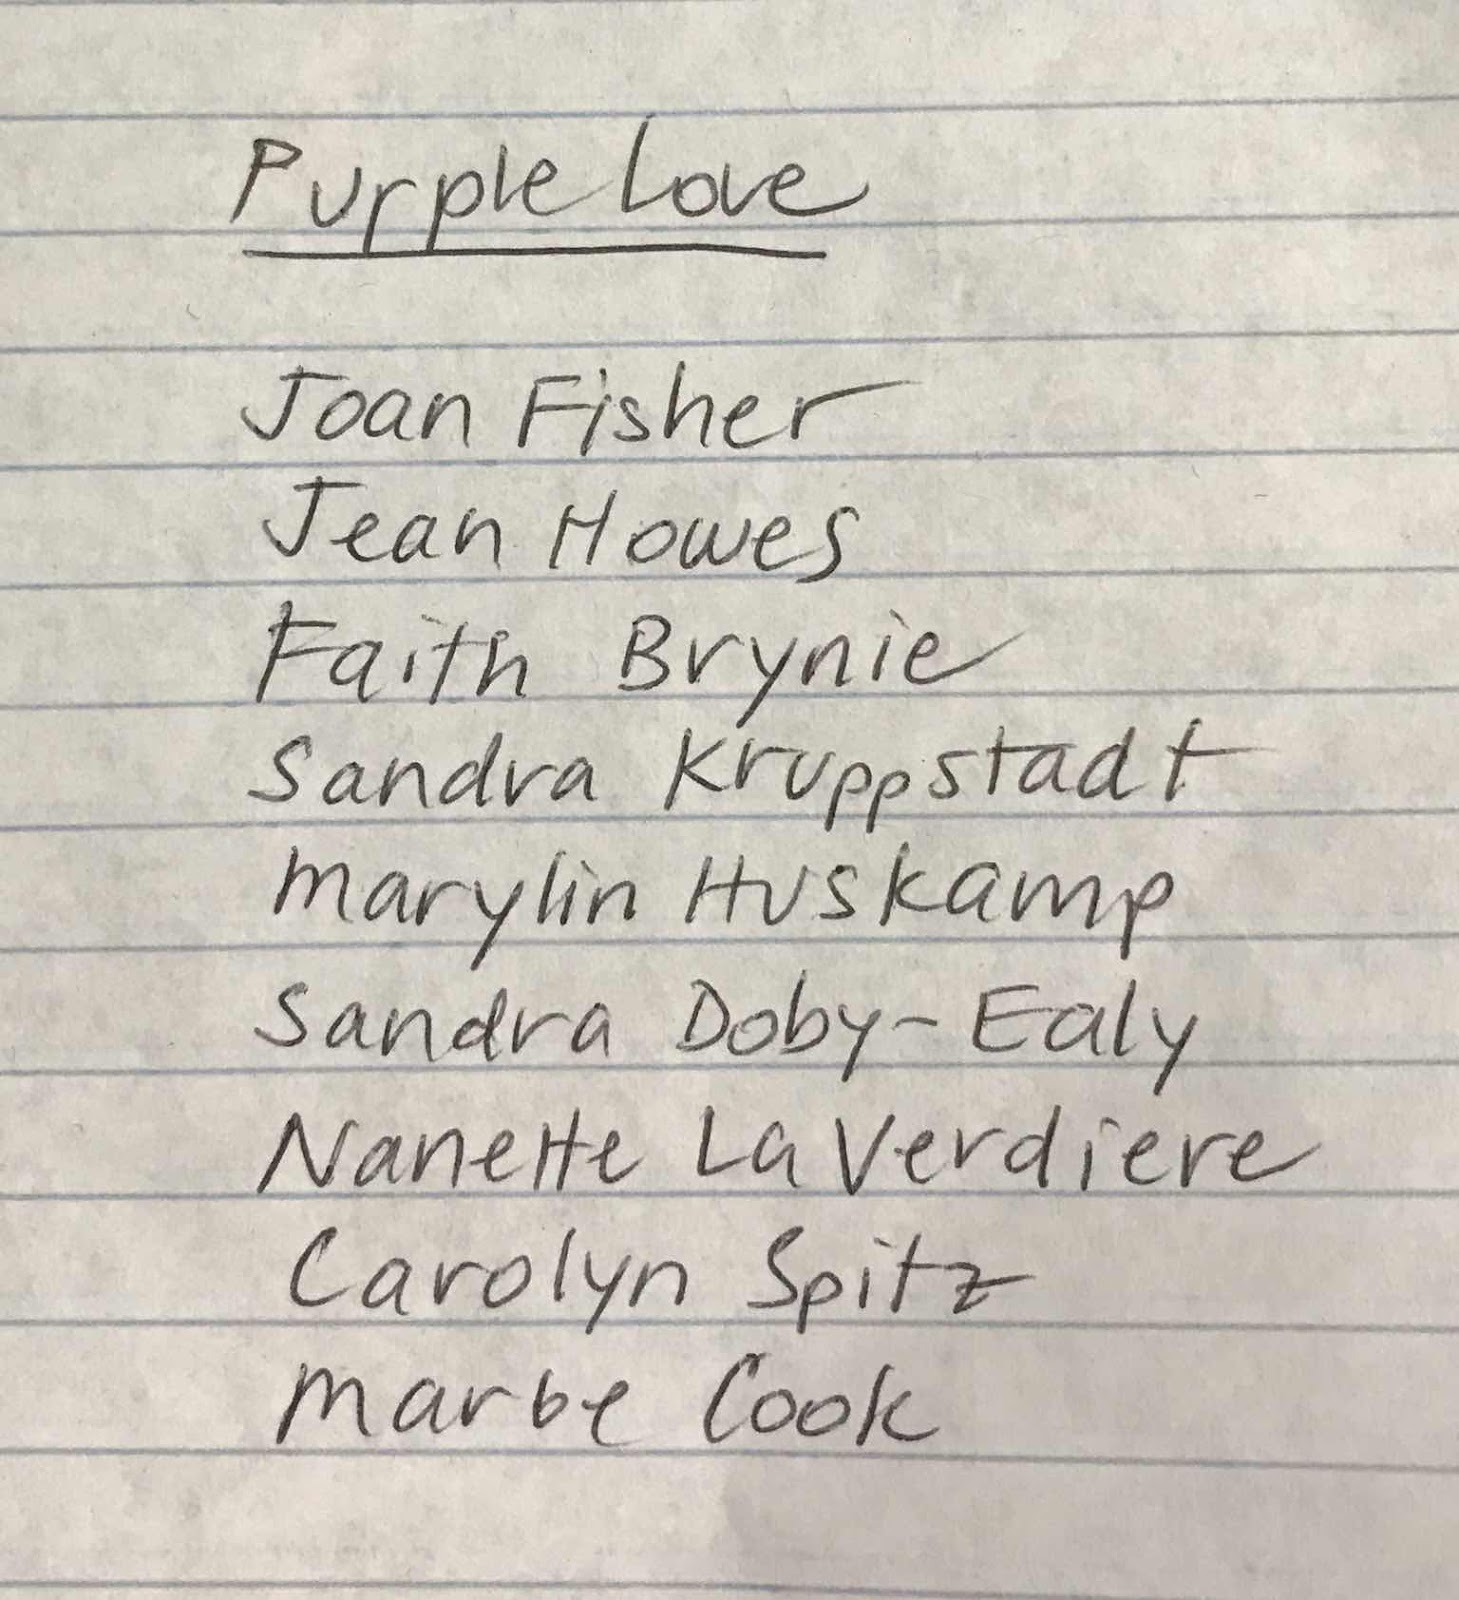 Purple Love
Joan Fisher
Jean Howes
Faith Brynie
Sandra Kruppstadt
Marylin Huskamp
Sandra Doby-Ealy
Nanette La Verdiere
Carolyn Spitz
Marbe Cook